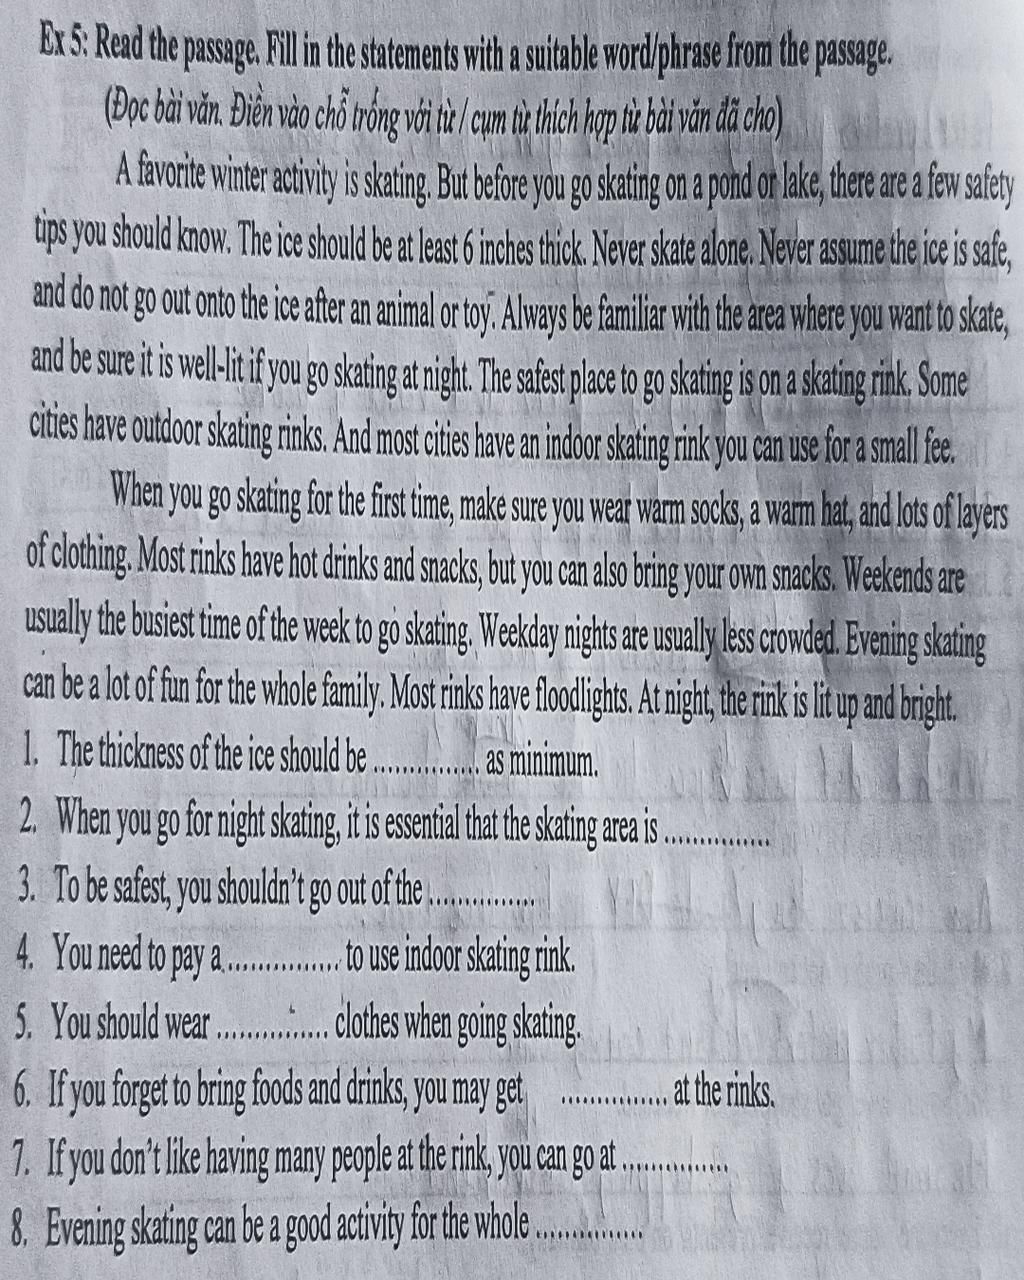 Ex 5: Read the passage. Fill in the statements with a suitable word/phrase from the passage.
(Đọc bài văn. Điền vào chỗ trống với từ / cụm từ thích hợp từ bài văn đã cho)
A favorite winter activity is skating. But before you go skating on a pond or lake, there are a few safety
tips you should know. The ice should be at least 6 inches thick. Never skate alone. Never assume the ice is safe,
and do not go out onto the ice after an animal or toy. Always be familiar with the area where you want to skate,
and be sure it is well-lit if you go skating at night. The safest place to go skating is on a skating rink. Some
cities have outdoor skating rinks. And most cities have an indoor skating rink you can use for a small fee.
When you go skating for the first time, make sure you wear warm socks, a warm hat, and lots of layers
of clothing. Most rinks have hot drinks and snacks, but you can also bring your own snacks. Weekends are
usually the busiest time of the week to go skating. Weekday nights are usually less crowded. Evening skating
can be a lot of fun for the whole family. Most rinks have floodlights. At night, the rink is lit up and bright.
1. The thickness of the ice should be ............... as minimum.
2. When you go for night skating, it is essential that the skating area is ...............
3. To be safest, you shouldn't go out of the ...............
4. You need to pay a ............... to use indoor skating rink.
5. You should wear ............... clothes when going skating.
6. If you forget to bring foods and drinks, you may get ............... at the rinks.
7. If you don't like having many people at the rink, you can go at ...............
8. Evening skating can be a good activity for the whole ...............